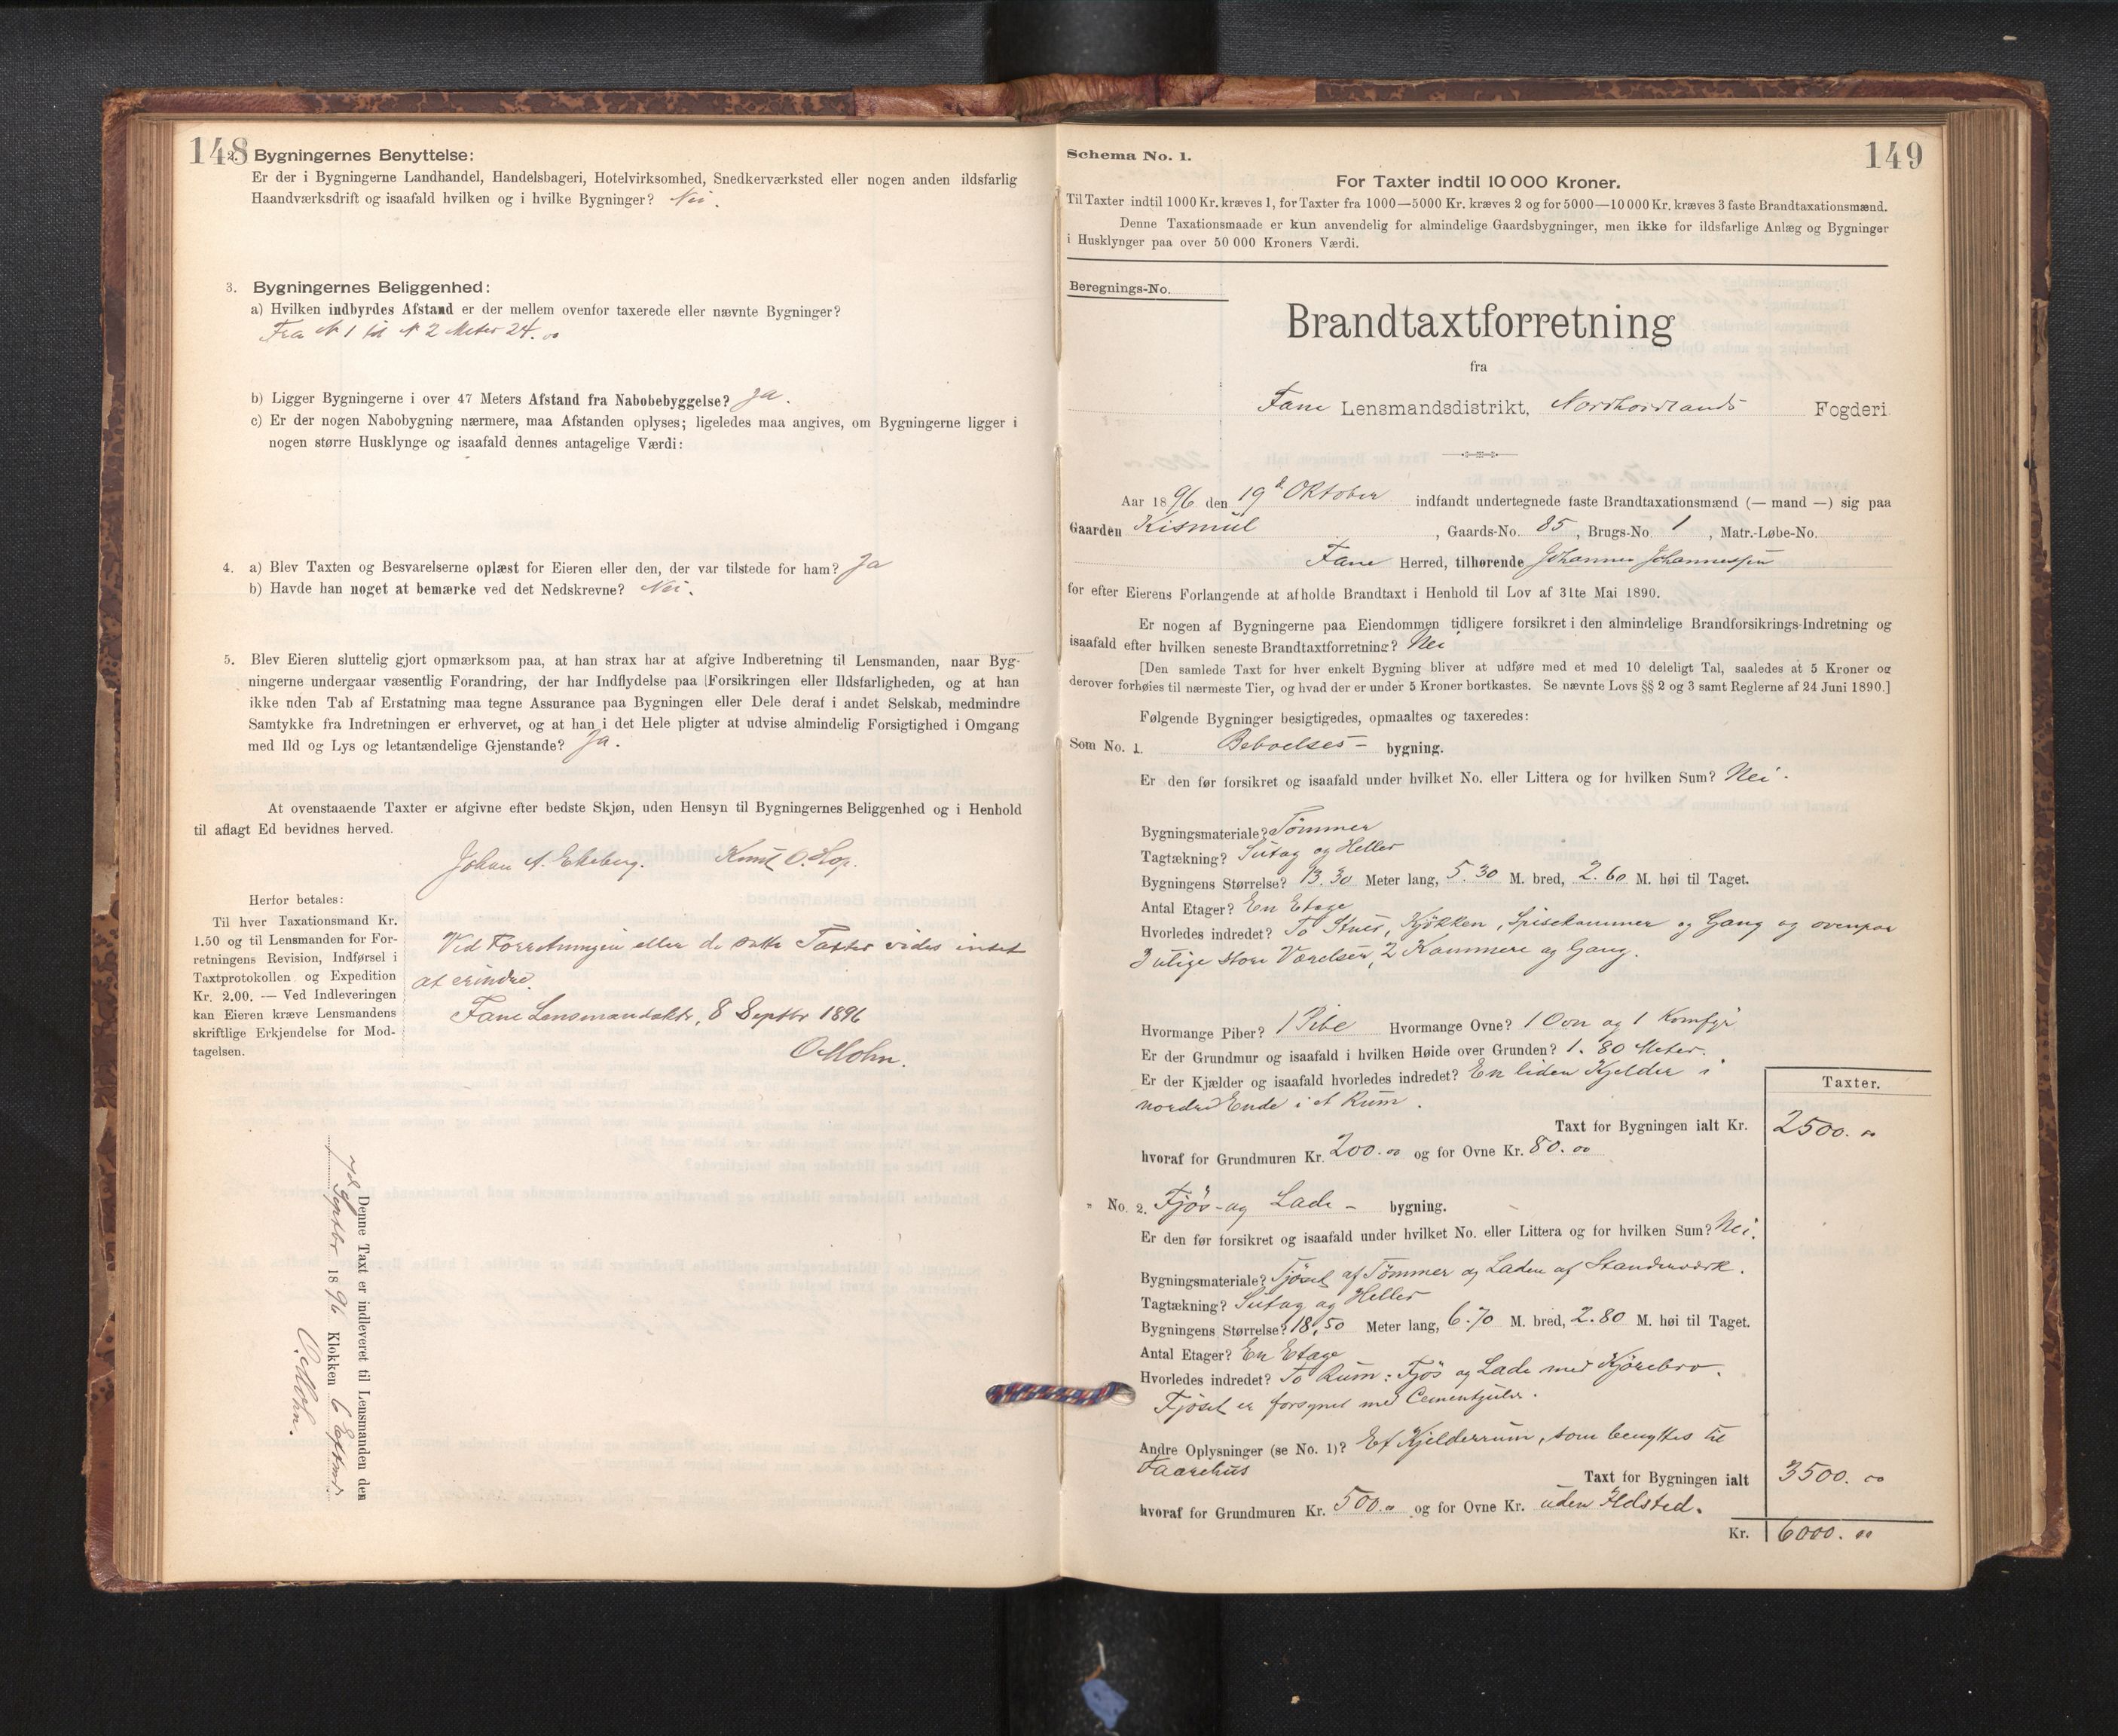 148
2. Bygningernes Benyttelse:
Er der i Bygningerne Landhandel, Handelsbageri, Hotelvirksomhed, Snedkerværksted eller nogen anden ildsfarlig
Haandværksdrift og isaafald hvilken og i hvilke Bygninger? Nei.
3. Bygningernes Beliggenhed:
a) Hvilken indbyrdes Afstand er der mellem ovenfor taxerede eller nævnte Bygninger?
Fra N 1 til N 2 Meter 24.00
b) Ligger Bygningerne i over 47 Meters Afstand fra Nabobebyggelse? Ja.
c) Er der nogen Nabobygning nærmere, maa Afstanden oplyses; ligeledes maa angives, om Bygningerne ligger i
nogen større Husklynge og isaafald dennes antagelige Værdi:
4. a) Blev Taxten og Besvarelserne oplæst for Eieren eller den, der var tilstede for ham? Ja
b) Havde han noget at bemærke ved det Nedskrevne? Nei.
5. Blev Eieren sluttelig gjort opmærksom paa, at han strax har at afgive Indberetning til Lensmanden, naar Byg-
ningerne undergaar væsentlig Forandring, der har Indflydelse paa Forsikringen eller Ildsfarligheden, og at han
ikke uden Tab af Erstatning maa tegne Assurance paa Bygningen eller Dele deraf i andet Selskab, medmindre
Samtykke fra Indretningen er erhvervet, og at han i det Hele pligter at udvise almindelig Forsigtighed i Omgang
med Ild og Lys og letantændelige Gjenstande? Ja.
At ovenstaaende Taxter er afgivne efter bedste Skjøn, uden Hensyn til Bygningernes Beliggenhed og i Henhold
til aflagt Ed bevidnes herved.
Johan A. Ekeberg. Knut O. Hop.
Herfor betales:
Til hver Taxationsmand Kr.
1.50 og til Lensmanden for For-
retningens Revision, Indførsel i
Taxtprotokollen og Expedition
Kr. 2.00. — Ved Indleveringen
kan Eieren kræve Lensmandens
skriftlige Erkjendelse for Mod-
tagelsen.
Ved Forretningen eller de satte Taxter vides intet
at erindre.
Fane Lensmandsktr, 8 Septbr 1896
O. Mohn.
Denne Taxt er indleveret til Lensmanden den
7de Septbr 1896 Klokken 6 Eftmd.
O. Mohn.
149
Schema No. 1.
For Taxter indtil 10 000 Kroner.
Til Taxter indtil 1000 Kr. kræves 1, for Taxter fra 1000—5000 Kr. kræves 2 og for 5000—10 000 Kr. kræves 3 faste Brandtaxationsmænd.
Denne Taxationsmaade er kun anvendelig for almindelige Gaardsbygninger, men ikke for ildsfarlige Anlæg og Bygninger
i Husklynger paa over 50 000 Kroners Værdi.
Beregnings-No.
Brandtaxtforretning
fra
Fane Lensmandsdistrikt, Nordhordlands Fogderi
Aar 1896 den 19d Oktober indfandt undertegnede faste Brandtaxationsmænd (— mand —) sig paa
Gaarden Kismul, Gaards-No. 85, Brugs-No. 1, Matr.-Løbe-No.
Fane Herred, tilhørende Johannes Johannessen
for efter Eierens Forlangende at afholde Brandtaxt i Henhold til Lov af 31te Mai 1890.
Er nogen af Bygningerne paa Eiendommen tidligere forsikret i den almindelige Brandforsikrings-Indretning og
isaafald efter hvilken seneste Brandtaxtforretning? Nei
[Den samlede Taxt for hver enkelt Bygning bliver at udføre med et med 10 deleligt Tal, saaledes at 5 Kroner og
derover forhøies til nærmeste Tier, og hvad der er under 5 Kroner bortkastes. Se nævnte Lovs §§ 2 og 3 samt Reglerne af 24 Juni 1890.]
Følgende Bygninger besigtigedes, opmaaltes og taxeredes:
Som No. 1. Beboelses- bygning.
Er den før forsikret og isaafald under hvilket No. eller Littera og for hvilken Sum? Nei.
Bygningsmateriale? Tømmer
Tagtækning? Sutag og Heller
Bygningens Størrelse? 13.30 Meter lang, 5.30 M. bred, 2.60 M. høi til Taget.
Antal Etager? En Etage
Hvorledes indredet? To Stuer, Kjøkken, Spisekammer og Gang og ovenpaa
3 ulige store Værelser, 2 Kammere og Gang.
Hvormange Piber? 1 Pibe Hvormange Ovne? 1 Ovn og 1 Komfyr
Er der Grundmur og isaafald i hvilken Høide over Grunden? 1.80 Meter.
Er der Kjælder og isaafald hvorledes indredet? En liden Kjelder i
nordre Ende i et Rum.
Taxter.
Taxt for Bygningen ialt Kr. 2500.00
hvoraf for Grundmuren Kr. 200.00 og for Ovne Kr. 80.00
" No. 2. Fjøs- og Lade- bygning.
Er den før forsikret og isaafald under hvilket No. eller Littera og for hvilken Sum? Nei.
Bygningsmateriale? Fjøset af Tømmer og Laden af Standerværk.
Tagtækning? Sutag og Heller
Bygningens Størrelse? 18,50 Meter lang, 6.70 M. bred, 2.80 M. høi til Taget.
Antal Etager? En Etage
Hvorledes indredet? To Rum: Fjøs og Lade med Kjørebro.
Fjøset er forsynet med Cementgulv.
Andre Oplysninger (se No. 1)? Et Kjelderrum, som benyttes til
Faarehus
Taxt for Bygningen ialt 3500.00
hvoraf for Grundmuren Kr. 500.00 og for Ovne Kr. uden Ildsted.
Kr. 6000.00